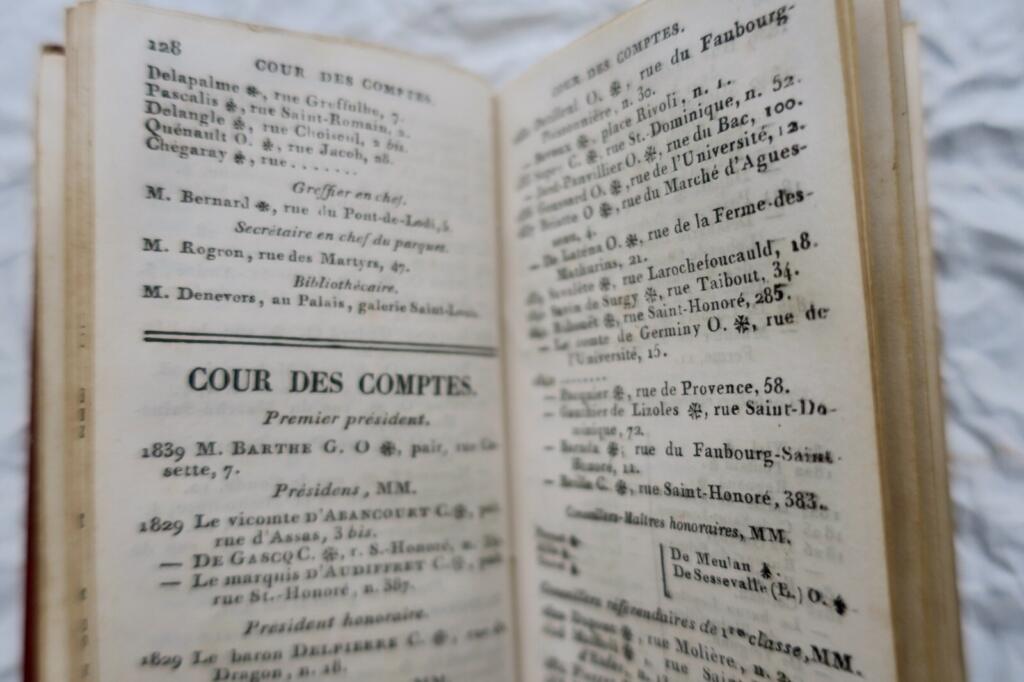 128
COUR DES COMPTES.
Delapalme ❋, rue Greffulhe, 7.
Pascalis ❋, rue Saint-Romain, 2.
Delangle ❋, rue Choiseul, 2 bis.
Quénault O. ❋, rue Jacob, 28.
Chégaray ❋, rue.......
Greffier en chef.
M. Bernard ❋, rue du Pont-de-Lodi, 5.
Secrétaire en chef du parquet.
M. Rogron, rue des Martyrs, 47.
Bibliothécaire.
M. Denevers, au Palais, galerie Saint-Louis.
COUR DES COMPTES.
Premier président.
1839 M. BARTHE G. O ❋, pair, rue
sette, 7.
Présidens, MM.
1829 Le vicomte D'ABANCOURT C. ❋,
rue d'Assas, 3 bis.
— DE GASCQ C. ❋, r. S.-Honoré, n.
— Le marquis D'AUDIFFRET C. ❋,
rue St.-Honoré, n. 387.
Président honoraire.
1829 Le baron DELPIERRE C. ❋, rue du
Dragon, n. 18.
COUR DES COMPTES.
O. ❋, rue du Faubourg-
Poissonnière, n. 30.
❋, place Rivoli, n. 1.
C. ❋, rue St.-Dominique, n. 52.
Jard-Panvillier O. ❋, rue du Bac, 100.
Goussard O. ❋, rue de l'Université, 12.
O ❋, rue du Marché d'Agues-
seau, 4.
— De Laténa O. ❋, rue de la Ferme-des-
Mathurins, 21.
❋, rue Larochefoucauld, 18.
de Surgy ❋, rue Taibout, 34.
❋, rue Saint-Honoré, 285.
— Le comte de Germiny O. ❋, rue de
l'Université, 15.
— Pasquier ❋, rue de Provence, 58.
— Gauthier de Lizoles ❋, rue Saint-Do-
minique, 72.
❋, rue du Faubourg-Saint-
Honoré, 11.
C. ❋, rue Saint-Honoré, 383.
Conseillers-Maîtres honoraires, MM.
De Meulan ❋.
De Sessevalle (E.) O. ❋
Conseillers référendaires de 1re classe, MM.
❋, rue Molière, n. 2.